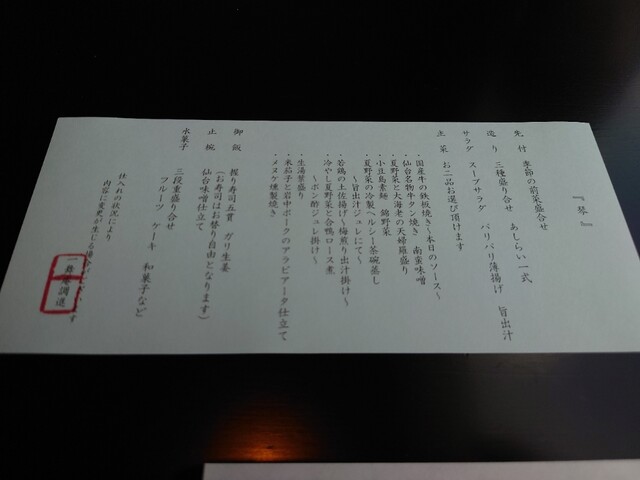 『琴』
先付 季節の前菜盛合せ あしらい一式
造り 三種盛り合せ
サラダ スープサラダ パリパリ薄揚げ 旨出汁
主菜 お二品お選び頂けます
・国産牛の鉄板焼き～本日のソース～
・仙台名物牛タン焼き 南蛮味噌
・夏野菜と大海老の天婦羅盛り
・小豆島素麺 錦野菜
・夏野菜の冷製ヘルシー茶碗蒸し
～旨出汁ジュレにて～
・若鶏の土佐揚げ～梅煎り出汁掛け～
・冷やし夏野菜と合鴨ロース煮
・生湯葉盛り
～ポン酢ジュレ掛け～
・米茄子と岩中ポークのアラビアータ仕立て
・メヌケ燻製焼き
御飯 握り寿司五貫 ガリ生姜
(お寿司はお替り自由となります)
止椀 仙台味噌仕立て
水菓子 三段重盛り合せ
フルーツ ケーキ 和菓子など
仕入れの状況により
内容に変更が生じる場